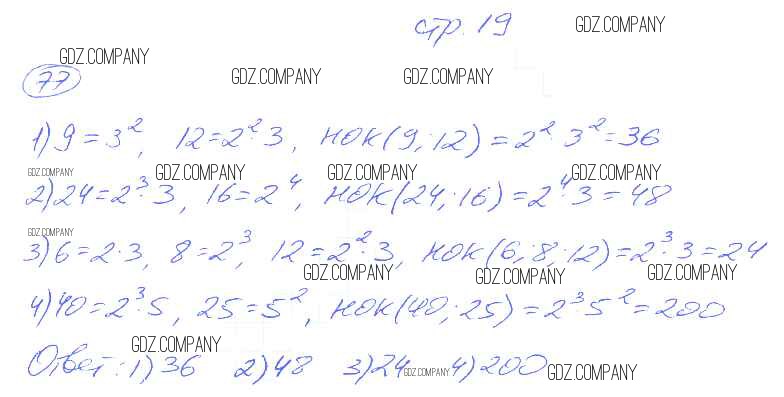 стр. 19
GDZ.COMPANY
GDZ.COMPANY
77
GDZ.COMPANY
GDZ.COMPANY
1) 9 = 3², 12 = 2²·3, НОК(9; 12) = 2²·3² = 36
GDZ.COMPANY
GDZ.COMPANY
GDZ.COMPANY
GDZ.COMPANY
2) 24 = 2³·3, 16 = 2⁴, НОК(24; 16) = 2⁴·3 = 48
GDZ.COMPANY
3) 6 = 2·3, 8 = 2³, 12 = 2²·3, НОК(6; 8; 12) = 2³·3 = 24
GDZ.COMPANY
GDZ.COMPANY
GDZ.COMPANY
4) 40 = 2³·5, 25 = 5², НОК(40; 25) = 2³·5² = 200
GDZ.COMPANY
Ответ: 1) 36 2) 48 3) 24 GDZ.COMPANY 4) 200
GDZ.COMPANY